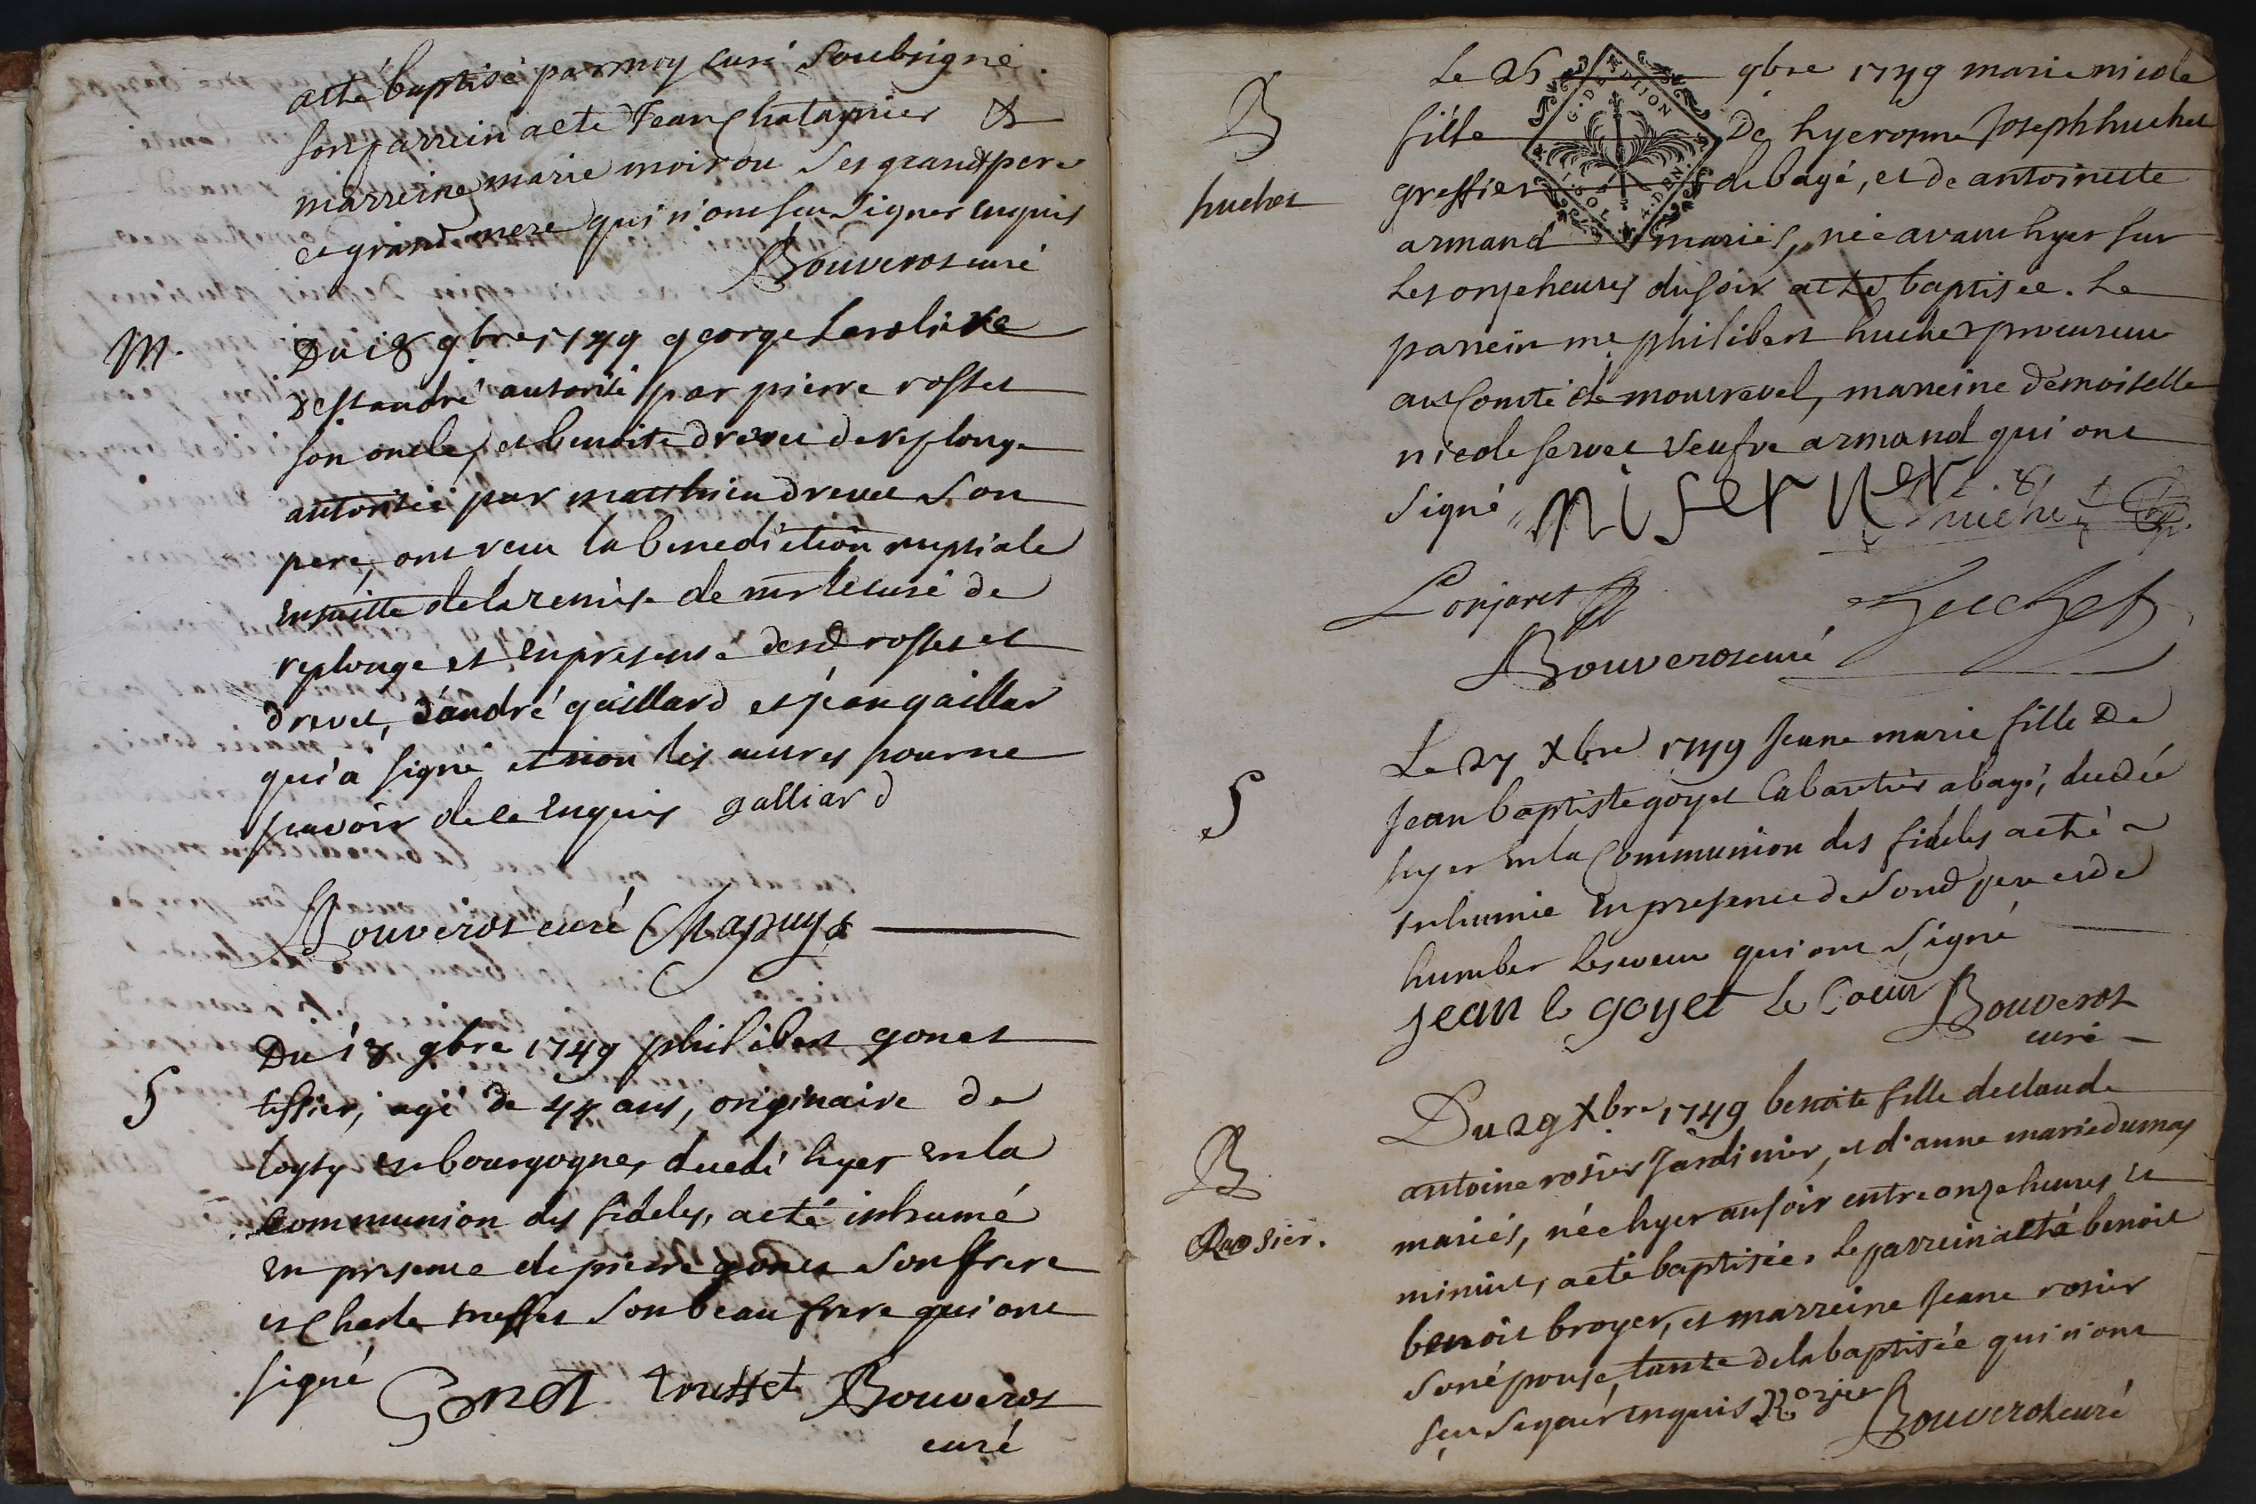 a eté baptisé par moy curé soubsigné.
son parrein a eté Jean Chatagnier &
marreine marie moirou ses grand pere
et grand mere qui n'ont seu signer enquis
Bouverot curé
M.
Du 18 9bre 1749 george
de st andré autorisé par pierre rosset
son oncle, et benoite drevet de replonge
autorisée par matthieu drevet son
pere, ont receu la benediction nuptiale
ensuitte de la remise de mr le curé de
replonge et en presence desd rosset et
drevet, d'andré gaillard et jean gaillar
qui a signé et non les autres pour ne
scavoir de ce enquis galliard
Bouverot curé Chapuys
S
Du 18 9bre 1749 philibert gonet
tissier, agé de 44 ans, originaire de
en bourgogne, decedé hyer en la
communion des fideles, a eté inhumé
en presence de pierre gonet son frere
et Charle trusset son beau frere qui ont
signé Gonet trusset Bouverot
curé
B
huchet
Le 25 9bre 1749 marie nicole
fille De hyeronme Joseph huchet
greffier de bagé, et de antoinette
armand mariés, née avant hyer sur
les onze heures du soir a eté baptisée. Le
parrein me philibert huchet procureur
au Comté de montrevel, marreine demoiselle
nicole servet veufve armand qui ont
signé n i servet huchet
G. DE DIJON
Lonjaret huchet
Bouverot curé
S
Le 27 Xbre 1749 Jeane marie fille de
Jean baptiste goyet Cabartier a bagé, decedée
hyer en la Communion des fideles a eté
inhumée en presence de sond pere et de
humber lecoeur qui ont signé
jean b goyet le Coeur Bouverot
curé
B
Rosier.
Du 29 Xbre 1749 benoite fille de claude
antoine rosier Jardinier, et d'anne marie dumas
mariés, née hyer au soir entre onze heures et
minuit, a eté baptisée. Le parrein a eté benoit
benoit broyer, et marreine Jeane rosier
son épouse, tante de la baptisée qui n'ont
seu signer enquis Rozier Bouverot curé